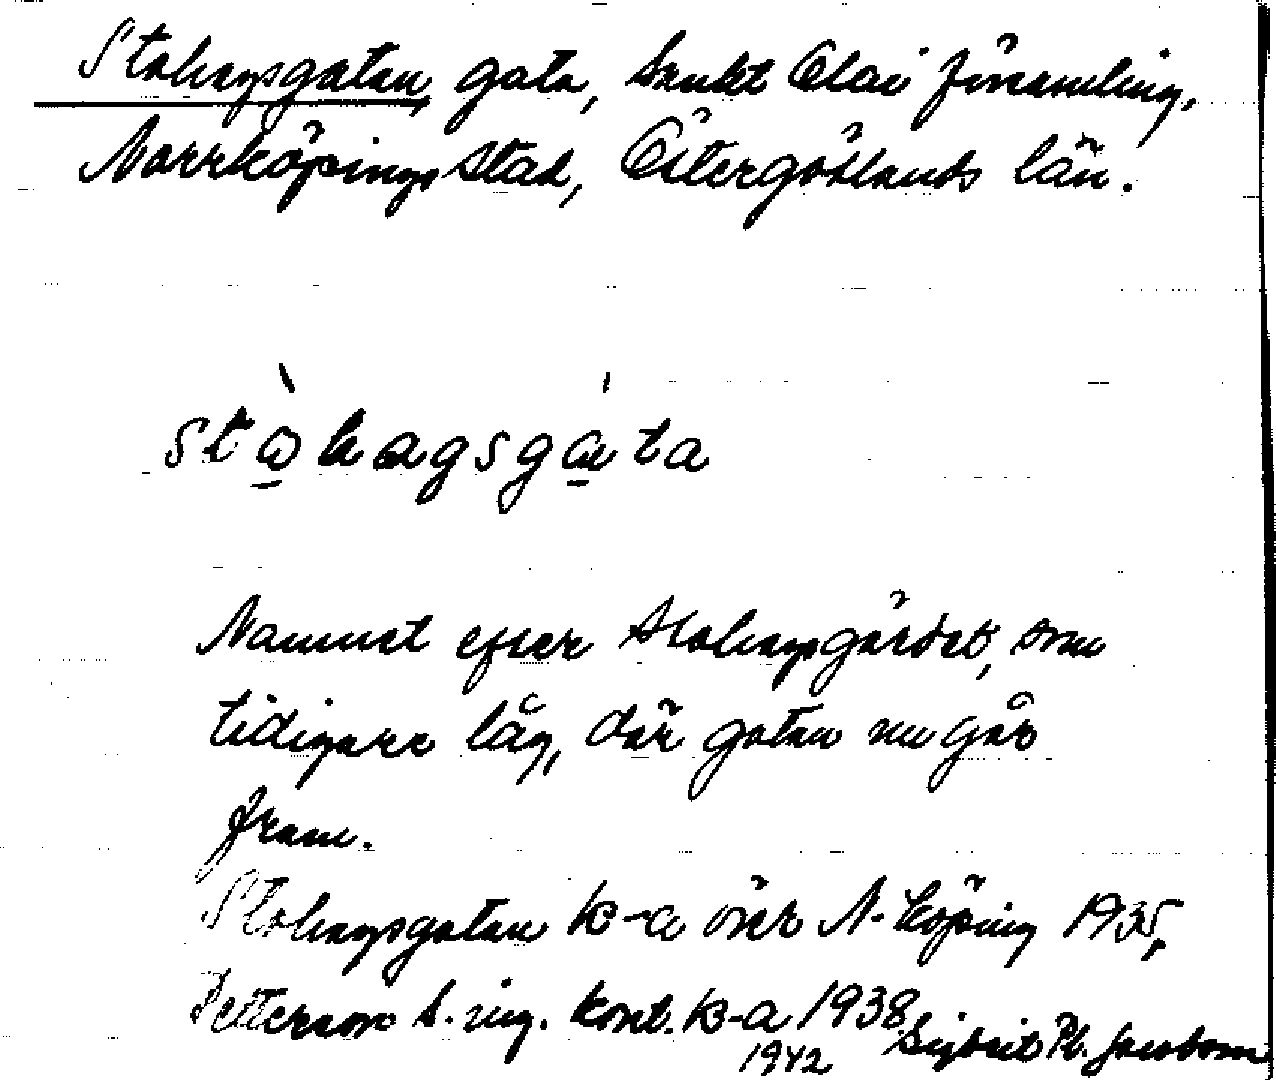 Stohagsgatan, gata, Sankt Olai församling,
Norrköpings stad, Östergötlands län.
stòhagsgáta
Namnet efter Stohagsgärdet, som
tidigare låg, där gatan nu går
fram.
Stohagsgatan k-a över N-köping 1935,
Pettersson s. ing. kont. k-a 1938
1942 Sigbrit Pl. Jacobson